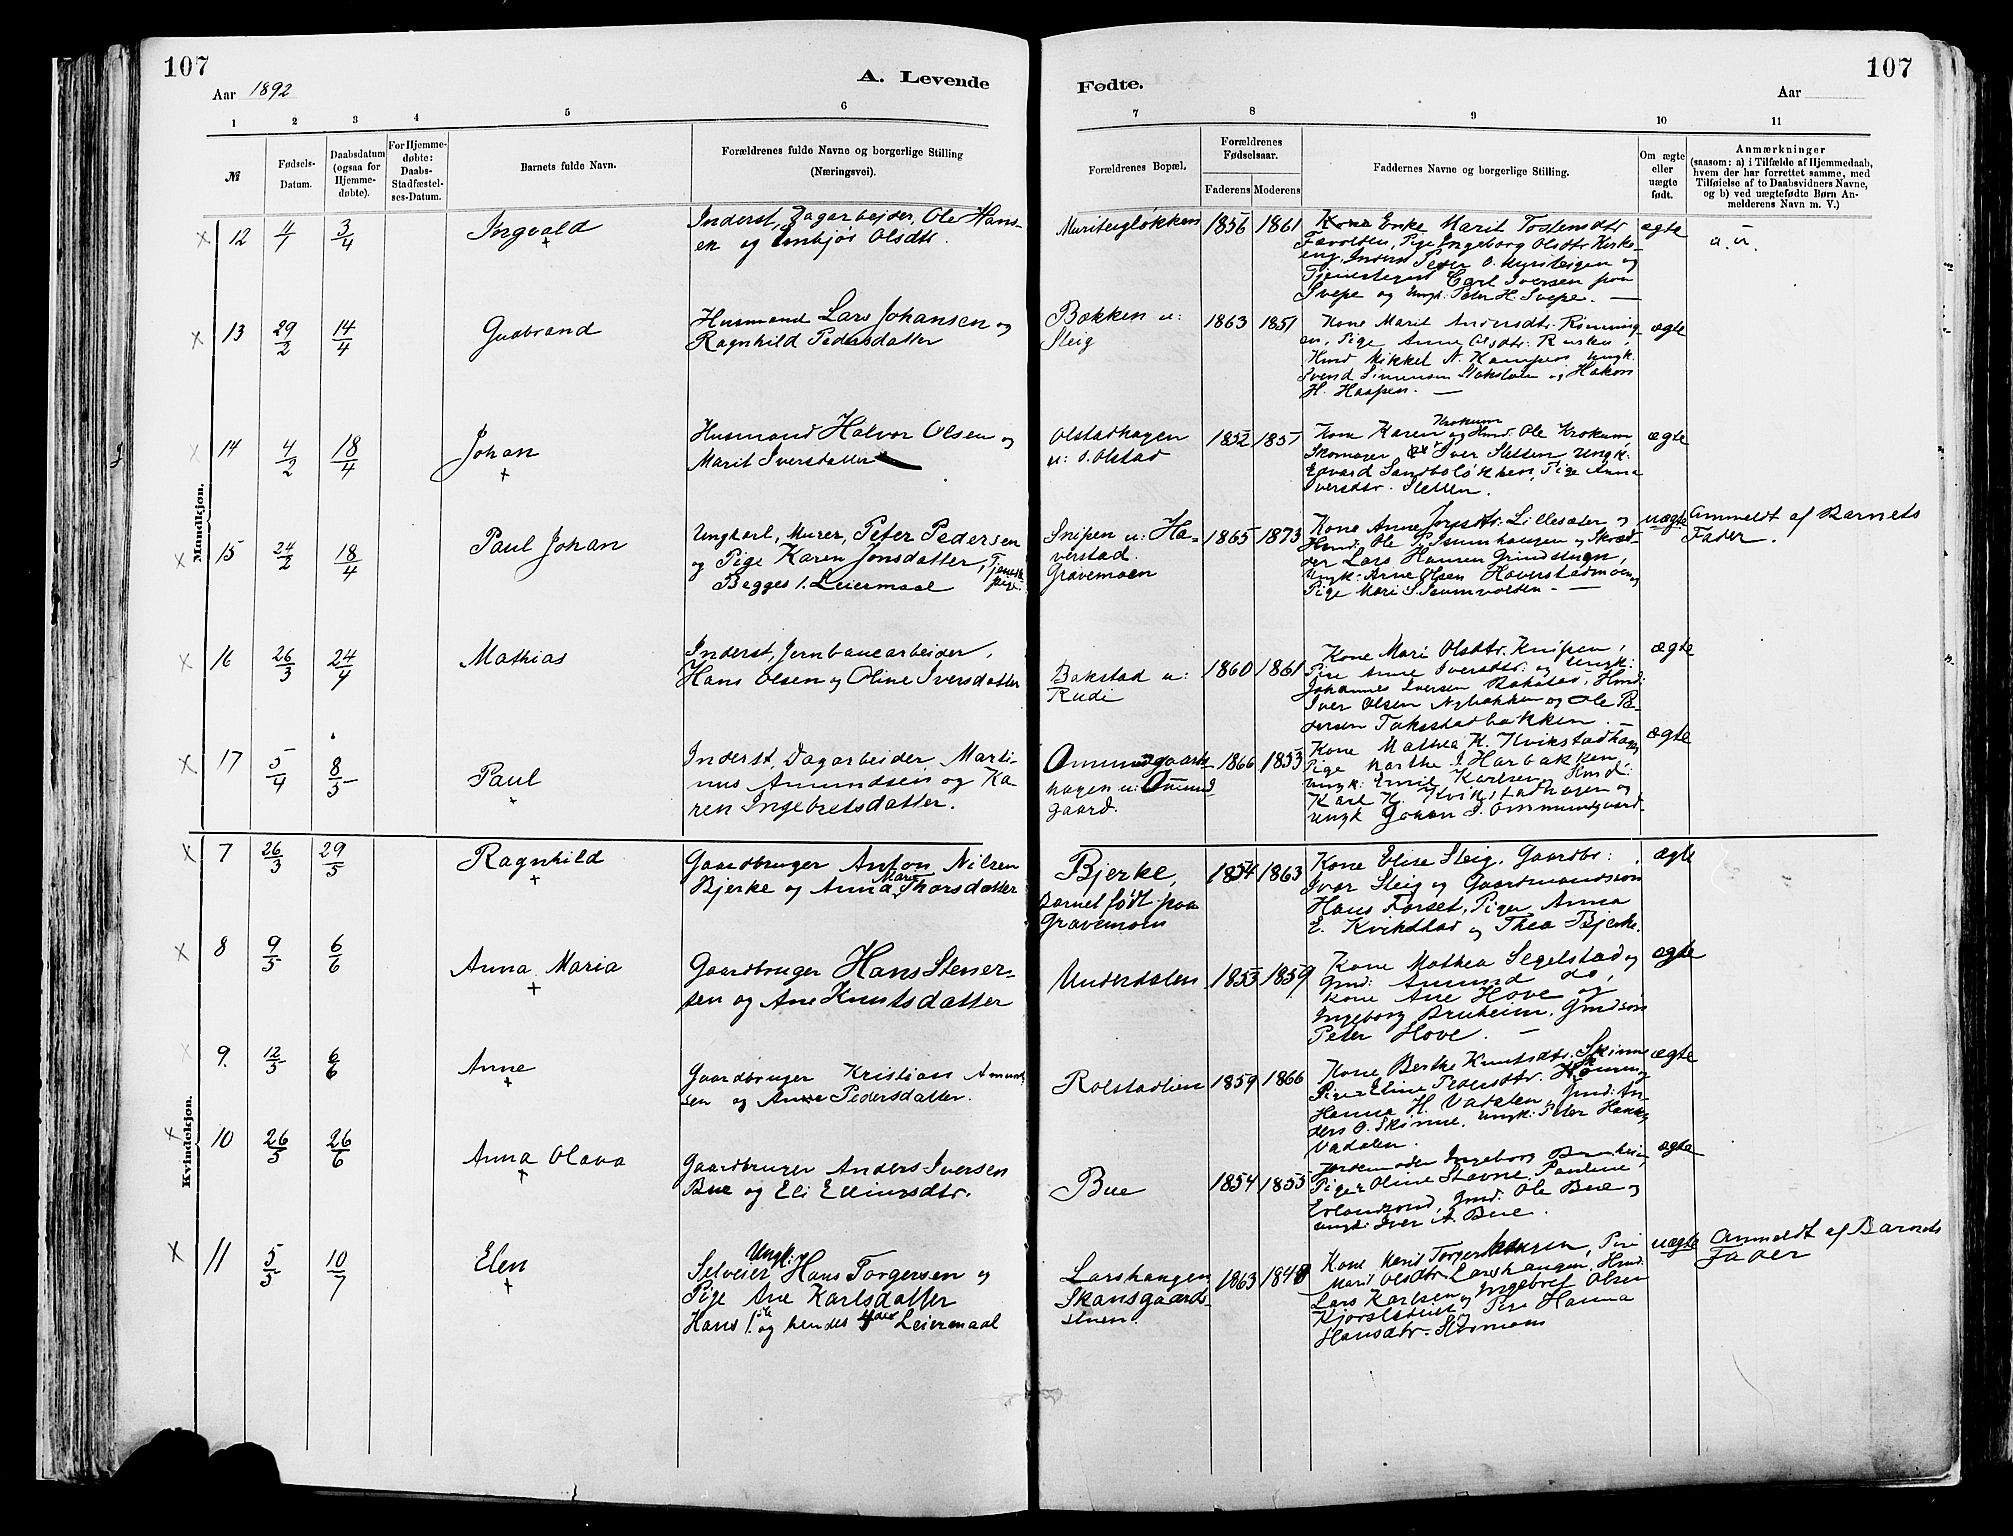 107
107
A. Levende
Fødte.
Aar 1892
Aar
1 2 3 4 5 6 7 8 9 10 11
№
Fødsels-
Datum.
Daabsdatum
(ogsaa for
Hjemme-
døbte).
For Hjemme-
døbte:
Daabs-
Stadfæstel-
ses-Datum.
Barnets fulde Navn.
Forældrenes fulde Navne og borgerlige Stilling
(Næringsvei).
Forældrenes Bopæl.
Forældrenes
Fødselsaar.
Faderens Moderens
Faddernes Navne og borgerlige Stilling.
Om ægte
eller
uægte
født.
Anmærkninger
(saasom: a) i Tilfælde af Hjemmedaab,
hvem der har forrettet samme, med
Tilføielse af to Daabsvidners Navne,
og b) ved uægtefødte Børn An-
melderens Navn m. V.)
Mandkjøn.
12 4/1 3/4 Ingvald
Inderst, Dagarbejder, Ole Hans-
en og Embjør Olsdtr.
1856 1861
Enke Marit Tostensdtr
Pige Ingeborg Olsdtr Kirke-
eng, Inderst Peder O.
Carl Iversen paa
Svepe og Ungk: Peter H. Svepe. —
ægte
u. u.
13 29/2 14/4 Gudbrand
Husmand Lars Johansen og
Ragnhild Pedersdatter
Bakken u:
Steig
1863 1851
Kone Marit Andersdtr. Rønning-
en, Pige Anne Olsdtr:
Hmd Mikkel N. Kampen Ungk.
Svend Simensen og Hakon
H. Haapen. —
ægte
14 4/2 18/4 Johan
Husmand Halvor Olsen og
Marit Iversdatter
Olstadhagen
u: O. Olstad
1852 1851
Krokum
Kone Karen og Hmd. Ole Krokum,
Skomager Iver Sletten Ungk:
Edvard Sandboløkken, Pige Anna
Iversdtr. Sletten.
ægte
15 24/2 18/4 Paul Johan
Ungkerl, Murer, Peter Pedersen
og Pige Karen Jonsdatter, Tjeneste-
pige.
Begges 1. Leiermaal
Snipen u: Ha-
verstad.
Gravemoen
1865 1873
Kone Anne Lillesæter og
Hmd. Ole P. Isumhaugen og Skræd-
der Lars Hansen Grindstugn,
Ungk: Arne Olsen Haverstadmoen og
Pige Mari S. Isumvolden. —
uægte
Anmeldt af Barnets
Fader.
16 26/3 24/4 Mathias
Inderst, Jernbanearbeider,
Hans Olsen og Oline Iversdatter
Bakstad u:
Rudi
1860 1861
Kone Mari Olsdtr. Knipen,
Pige Anne Iversdtr: og Ungk:
Johannes Iversen Bakstad, Hmd:
Iver Olsen Nybakken og Ole Pe-
dersen Taksstadbakken. —
ægte
17 5/4 8/5 Paul
Inderst, Dagarbeider Marti-
nus Amundsen og Ka-
ren Ingebretsdatter.
Ommundgaards-
hagen u: Ommund-
gaard.
1866 1853
Kone Mathea K. Kvikstadhagen
Pige Marthe J. Harbakken,
Ungk: Emil Karlsen og Hmd:
Karl K. Kvikstadhagen og
Ungk Johan S. Ommundgaard.
ægte
Kvindekjøn.
7 26/3 29/5 Ragnhild
Gaardbruger Anton Nilsen
Bjerke og Anna Marie Thorsdatter
Bjerke,
Barnet født paa
Gravemoen
1854 1863
Kone Elise Steig. Gaardbr:
Ivar Steig og Gaardmandssøn
Hans Forset, Piger Anna
E. Kvikstad og Thea Bjerke.
ægte
8 9/5 6/6 Anna Maria
Gaardbruger Hans Stener-
sen og Ane Knutsdatter
Underdalen
1853 1859
Kone Mathea Segelstad og
Gmd: Amund do,
Kone Ane Hove og
Ingeborg Bruheim, Gmdsøn
Peter Hove. —
ægte
9. 12/5 6/6 Anne
Gaardbruger Kristian Amund-
sen og Anne Pedersdatter.
Rolstadlien
1859 1866
Kone Berthe Knutsdtr. Skinne
Piger Eline Pedersdtr.
Hanna H. Vadalen, Gmd: An-
ders O. Skinne, Ungk: Peter
Vadalen.
ægte
10 26/5 26/6 Anna Olava
Gaardbruger Anders Iversen
Bue og Eli Ellinsdtr.
Bue
1854 1855
Jordemoder Ingeborg Bruheim,
Piger Oline Stavne, Pauline
Gmd. Ole Bue og
Ungk: Iver A. Bue.
ægte
11 5/5 10/7 Elen
Ungk:
Selveier Hans Torgersen og
Pige Ane Karlsdatter
Hans 1ste og hendes Leiermaal
Larshaugen
Skansgaards-
stuen.
1863 1848
Kone Marit Torgershaugen, Pige
Marit Olsdtr Larshaugen, Hmd.
Lars Karlsen og Ingebret Olsen
Pige Hanna
Hansdtr.
uægte
Anmeldt af Barnets
Fader